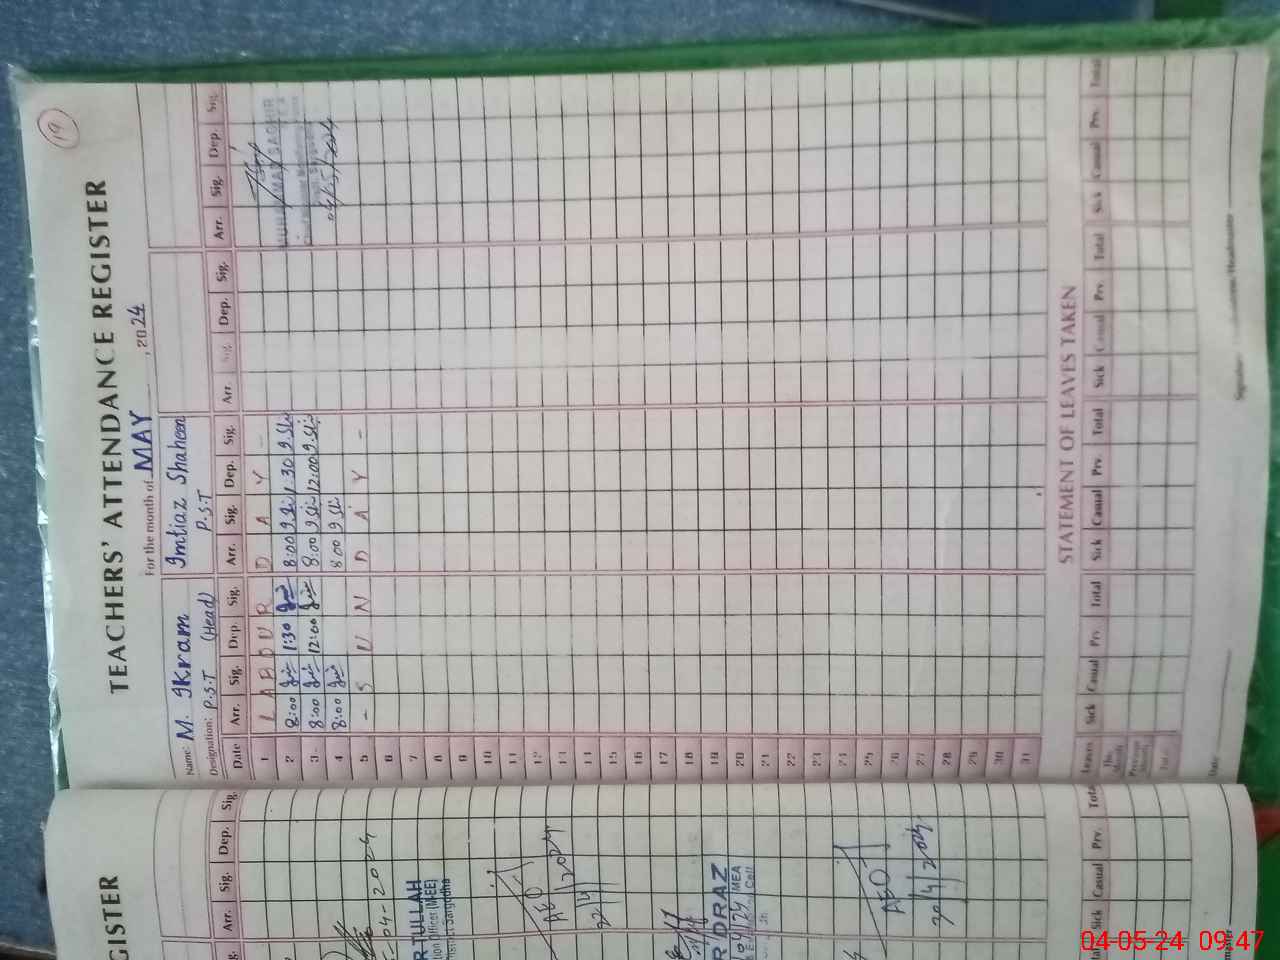 19
TEACHERS' ATTENDANCE REGISTER
For the month of MAY, 2024
Name: M. Ikram Imtiaz Shaheen
Designation: P.S.T (Head) P.S.T
Date Arr. Sig. Dep. Sig. Arr. Sig. Dep. Sig. Arr. Sig. Dep. Sig. Arr. Sig. Dep. Sig.
1 L A B O U R D A Y -
2 8:00 1:30 8:00 1:30
3 8:00 12:00 8:00 12:00
4 8:00 8:00
5 - S U N D A Y -
6
7
8
9
10
11
12
13
14
15
16
17
18
19
20
21
22
23
24
25
26
27
28
29
30
31
04/5/2024
STATEMENT OF LEAVES TAKEN
Leaves Sick Casual Prv. Total Sick Casual Prv. Total Sick Casual Prv. Total Sick Casual Prv. Total
This Month
Previous Month
Total
Date
GISTER
Arr. Sig. Dep. Sig.
04-2024
TULLAH
(MEE)
Sargodha
AEO
22/4/2024
R DRAZ
04/24 MEA
Cell
AEO
20/4/2024
Sick Casual Prv. Total
04-05-24 09:47